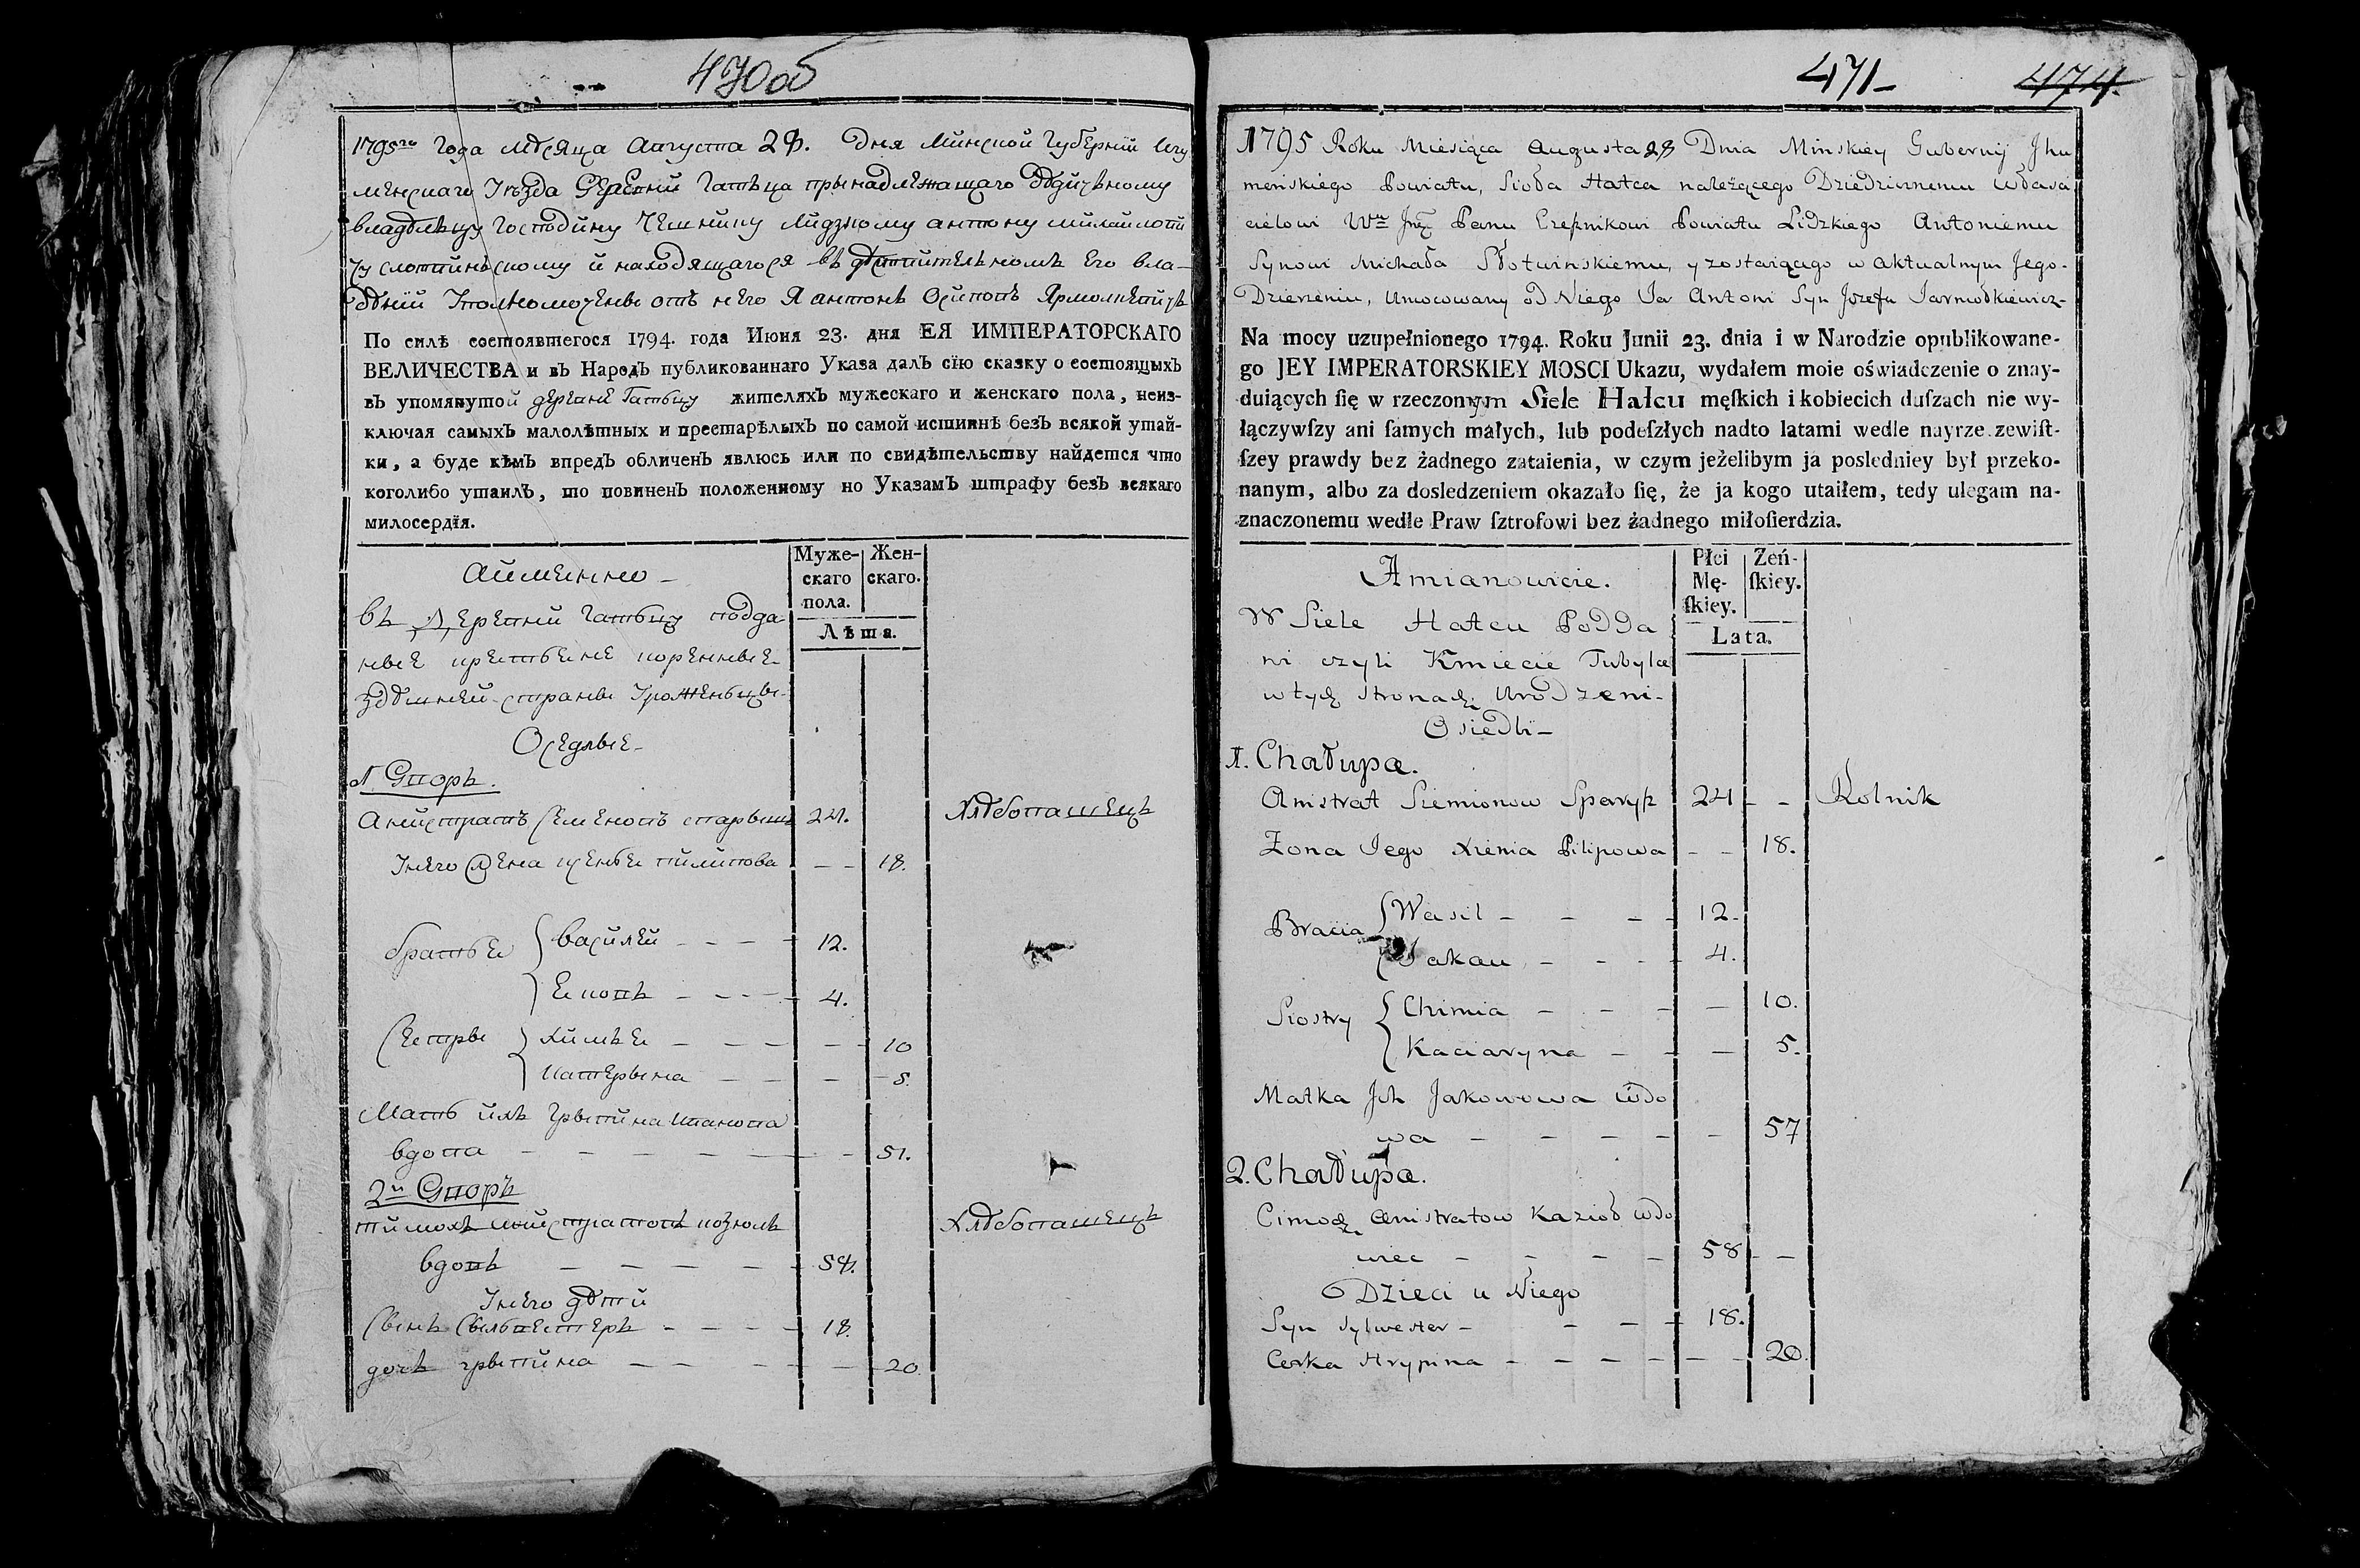 470 об
1795го Года мѣсяца Августа 28. Дня Минской Губерніи Игу
менскаго Уѣзда деревни Гатьца принадлежащаго дѣдичному
владѣльцу Господину Чешнику Лидзкому Антону Михайлови
чу Слотвинскому и находящагося въ дѣйствительномъ Его вла-
дѣнии Уполномоченны отъ него Я Антонъ Осиповъ Ярмолкевичъ
По силѣ состоявшегося 1794. года Июня 23. дня ЕЯ ИМПЕРАТОРСКАГО
ВЕЛИЧЕСТВА и въ Народъ публикованнаго Указа далъ сїю сказку о состоящыхъ
въ упомянутой деревне Гатьцу жителяхъ мужескаго и женскаго пола, неиз-
ключая самыхъ малолѣтных и престарѣлыхъ по самой истиннѣ безъ всякой утай-
ки, а буде кѣмъ впредъ обличенъ явлюсь или по свидѣтельству найдется что
коголибо утаилъ, то повиненъ положенному но Указамъ штрафу безъ всякаго
милосердїя.
Аименно -
Муже-скаго пола. Жен-скаго.
Лѣта.
въ Деревни Гатьцу подда-
ные крестьяне коренные
здѣшней страны Уроженьцы
Оседлые -
1. Дворъ.
Анистратъ Семеновъ спарышъ 24. Хлѣбопашецъ
Унего жена ксенья пилипова - - 18.
братья { василей - - - 12.
Яковъ - - - 4.
Сестры } химья - - - - 10
катерына - - - 5.
Мать ихъ грыпина иванова
вдова - - - - - 51.
2й Дворъ
тимохъ анистратовъ козиолъ Хлѣбопашецъ
вдовъ - - - - - 58.
Унего дѣти
Сынъ Сыльвестеръ - - - - 18.
дочъ грыпина - - - - - 20.
471- 474.
1795 Roku Miesiąca Augusta 28 Dnia Minskiey Gubernÿ Jhu
meńskiego Powiatu, Sioła Hatca należącego Dziedzicznemu właści
cielowi Wu Jmć Panu Czesnikowi Powiatu Lidzkiego Antoniemu
Synowi Michała Słotwinskiemu, y zostaiącego w aktualnym Jego-
Dzierzeniu, Umocowany od Niego Ja Antoni Syn Jozefa Jarmołkiewicz-
Na mocy uzupełnionego 1794. Roku Junii 23. dnia i w Narodzie opublikowane-
go JEY IMPERATORSKIEY MOSCI Ukazu, wydałem moie oświadczenie o znay-
duiących ſię w rzeczonym Siele Hatcu męſkich i kobiecich duſzach nie wy-
łączywſzy ani ſamych małych, lub podeſzłych nadto latami wedle nayrzezewiſt-
ſzey prawdy bez żadnego zataienia, w czym jeżelibym ja posledniey był przeko-
nanym, albo za dosledzeniem okazało ſię, że ja kogo utaiłem, tedy ulegam na-
znaczonemu wedle Praw ſztrofowi bez żadnego miłoſierdzia.
Amianowicie.
Płci Mę-ſkiey. Zeń-ſkiey.
Lata.
W Siele Hatcu Podda
ni czyli Kmiecie Tubylce
w tych stronach Urodzeni -
Osiedli -
1. Chałupa.
Anistrat Siemionow Sparysz 24 - - Rolnik
Żona Jego Xienia Pilipowa - - 18.
Bracia { Wasil - - - 12.
Jakau - - - 4.
Siostry { Chimia - - - - 10.
Kaciaryna - - - 5.
Matka Jch Jakowowa wdo
wa - - - - - 57
2. Chałupa.
Cimoch Anistratow Kazioł wdo
wiec - - - - 58 - -
Dzieci u Niego
Syn Sylwester - - - - 18.
Corka Hrypina - - - - - - 20.